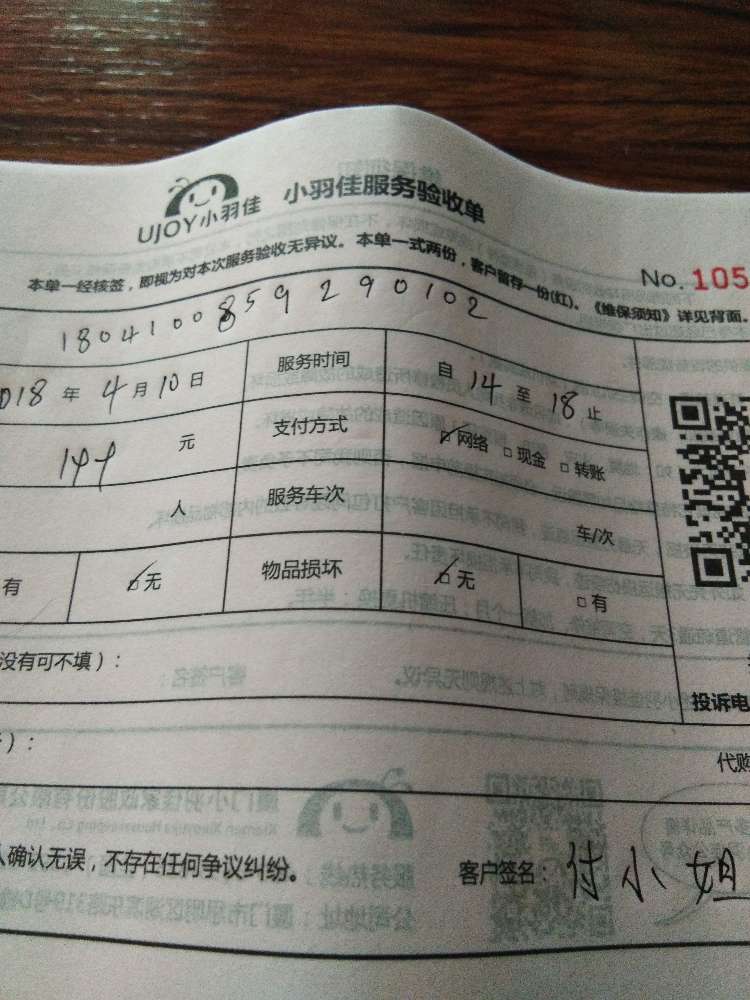 UJOY小羽佳 小羽佳服务验收单
本单一经核签，即视为对本次服务验收无异议。本单一式两份，客户留存一份(红)。《维保须知》详见背面。
No. 105
180410085929 0102
018 年 4 月 10 日 服务时间 自 14 至 18 止
144 元 支付方式 网络 现金 转账
人 服务车次 车/次
有 无 物品损坏 无 有
没有可不填）：
投诉电
）：
代购
人确认无误，不存在任何争议纠纷。 客户签名：付小姐